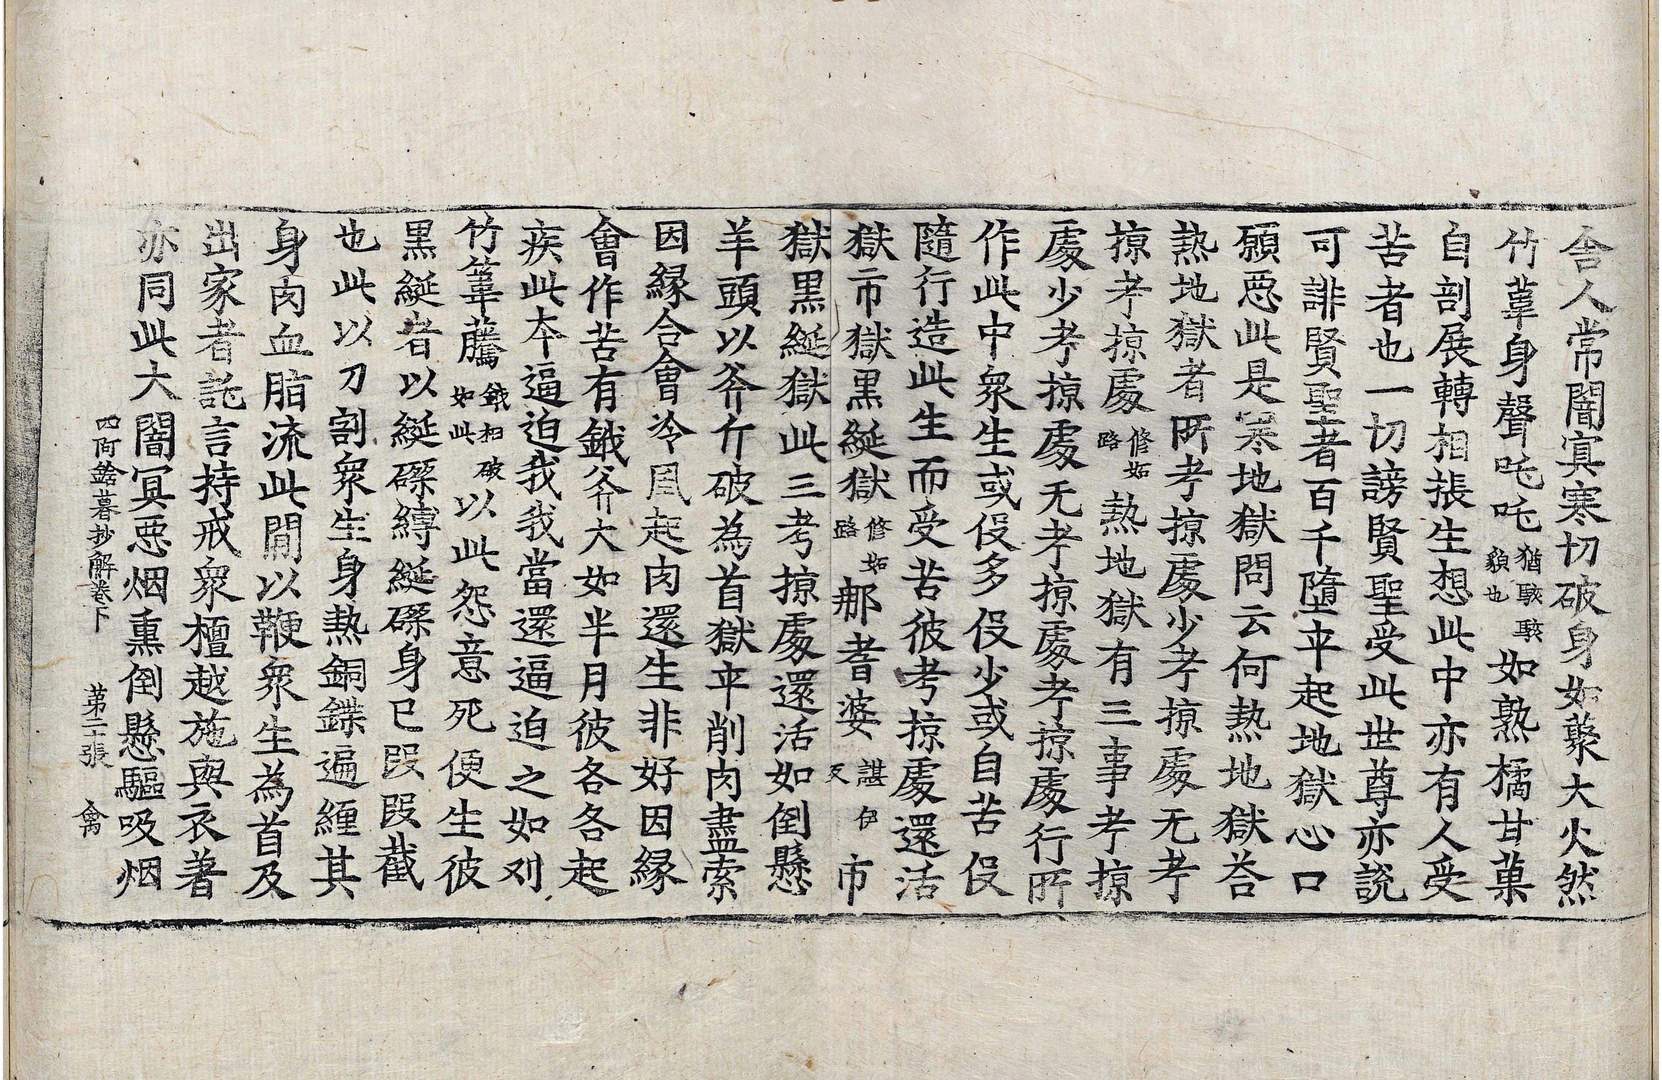 舍人常闇冥寒切破身如䕺大火然
竹葦身聲吒吒猶駭駭貌也如熟橘甘菓
自剖展轉相掁生想此中亦有人受
苦者也一切謗賢聖受此世尊亦說
可誹賢聖者百千墮㔻起地獄心口
願惡此是寒地獄問云何熱地獄荅
熱地獄者所考掠䖏少考掠䖏无考
掠考掠䖏修妬路熱地獄有三事考掠
䖏少考掠䖏无考掠䖏考掠䖏行所
作此中衆生或伇多伇少或自苦伇
隨行造此生而受苦彼考掠䖏還活
獄市獄黒綖獄修妬路那耆婆諶伊反市
獄黒綖獄此三考掠䖏還活如倒懸
羊頭以斧斤破為首獄㔻削肉盡索
因縁合會冷風起肉還生非好因縁
會作苦有鐵斧大如半月彼各各起
疾此本逼迫我我當還逼迫之如刈
竹葦䕨鐵相破如此以此怨意死便生彼
黒綖者以綖磔縛綖磔身已段段截
也此以刀割衆生身熱銅鍱遍纏其
身肉血脂流此間以鞭衆生為首及
出家者託言持戒衆檀越施與衣著
亦同此大闇冥惡烟熏倒懸驅吸烟
四阿鋡暮抄解卷下 第二十張 禽